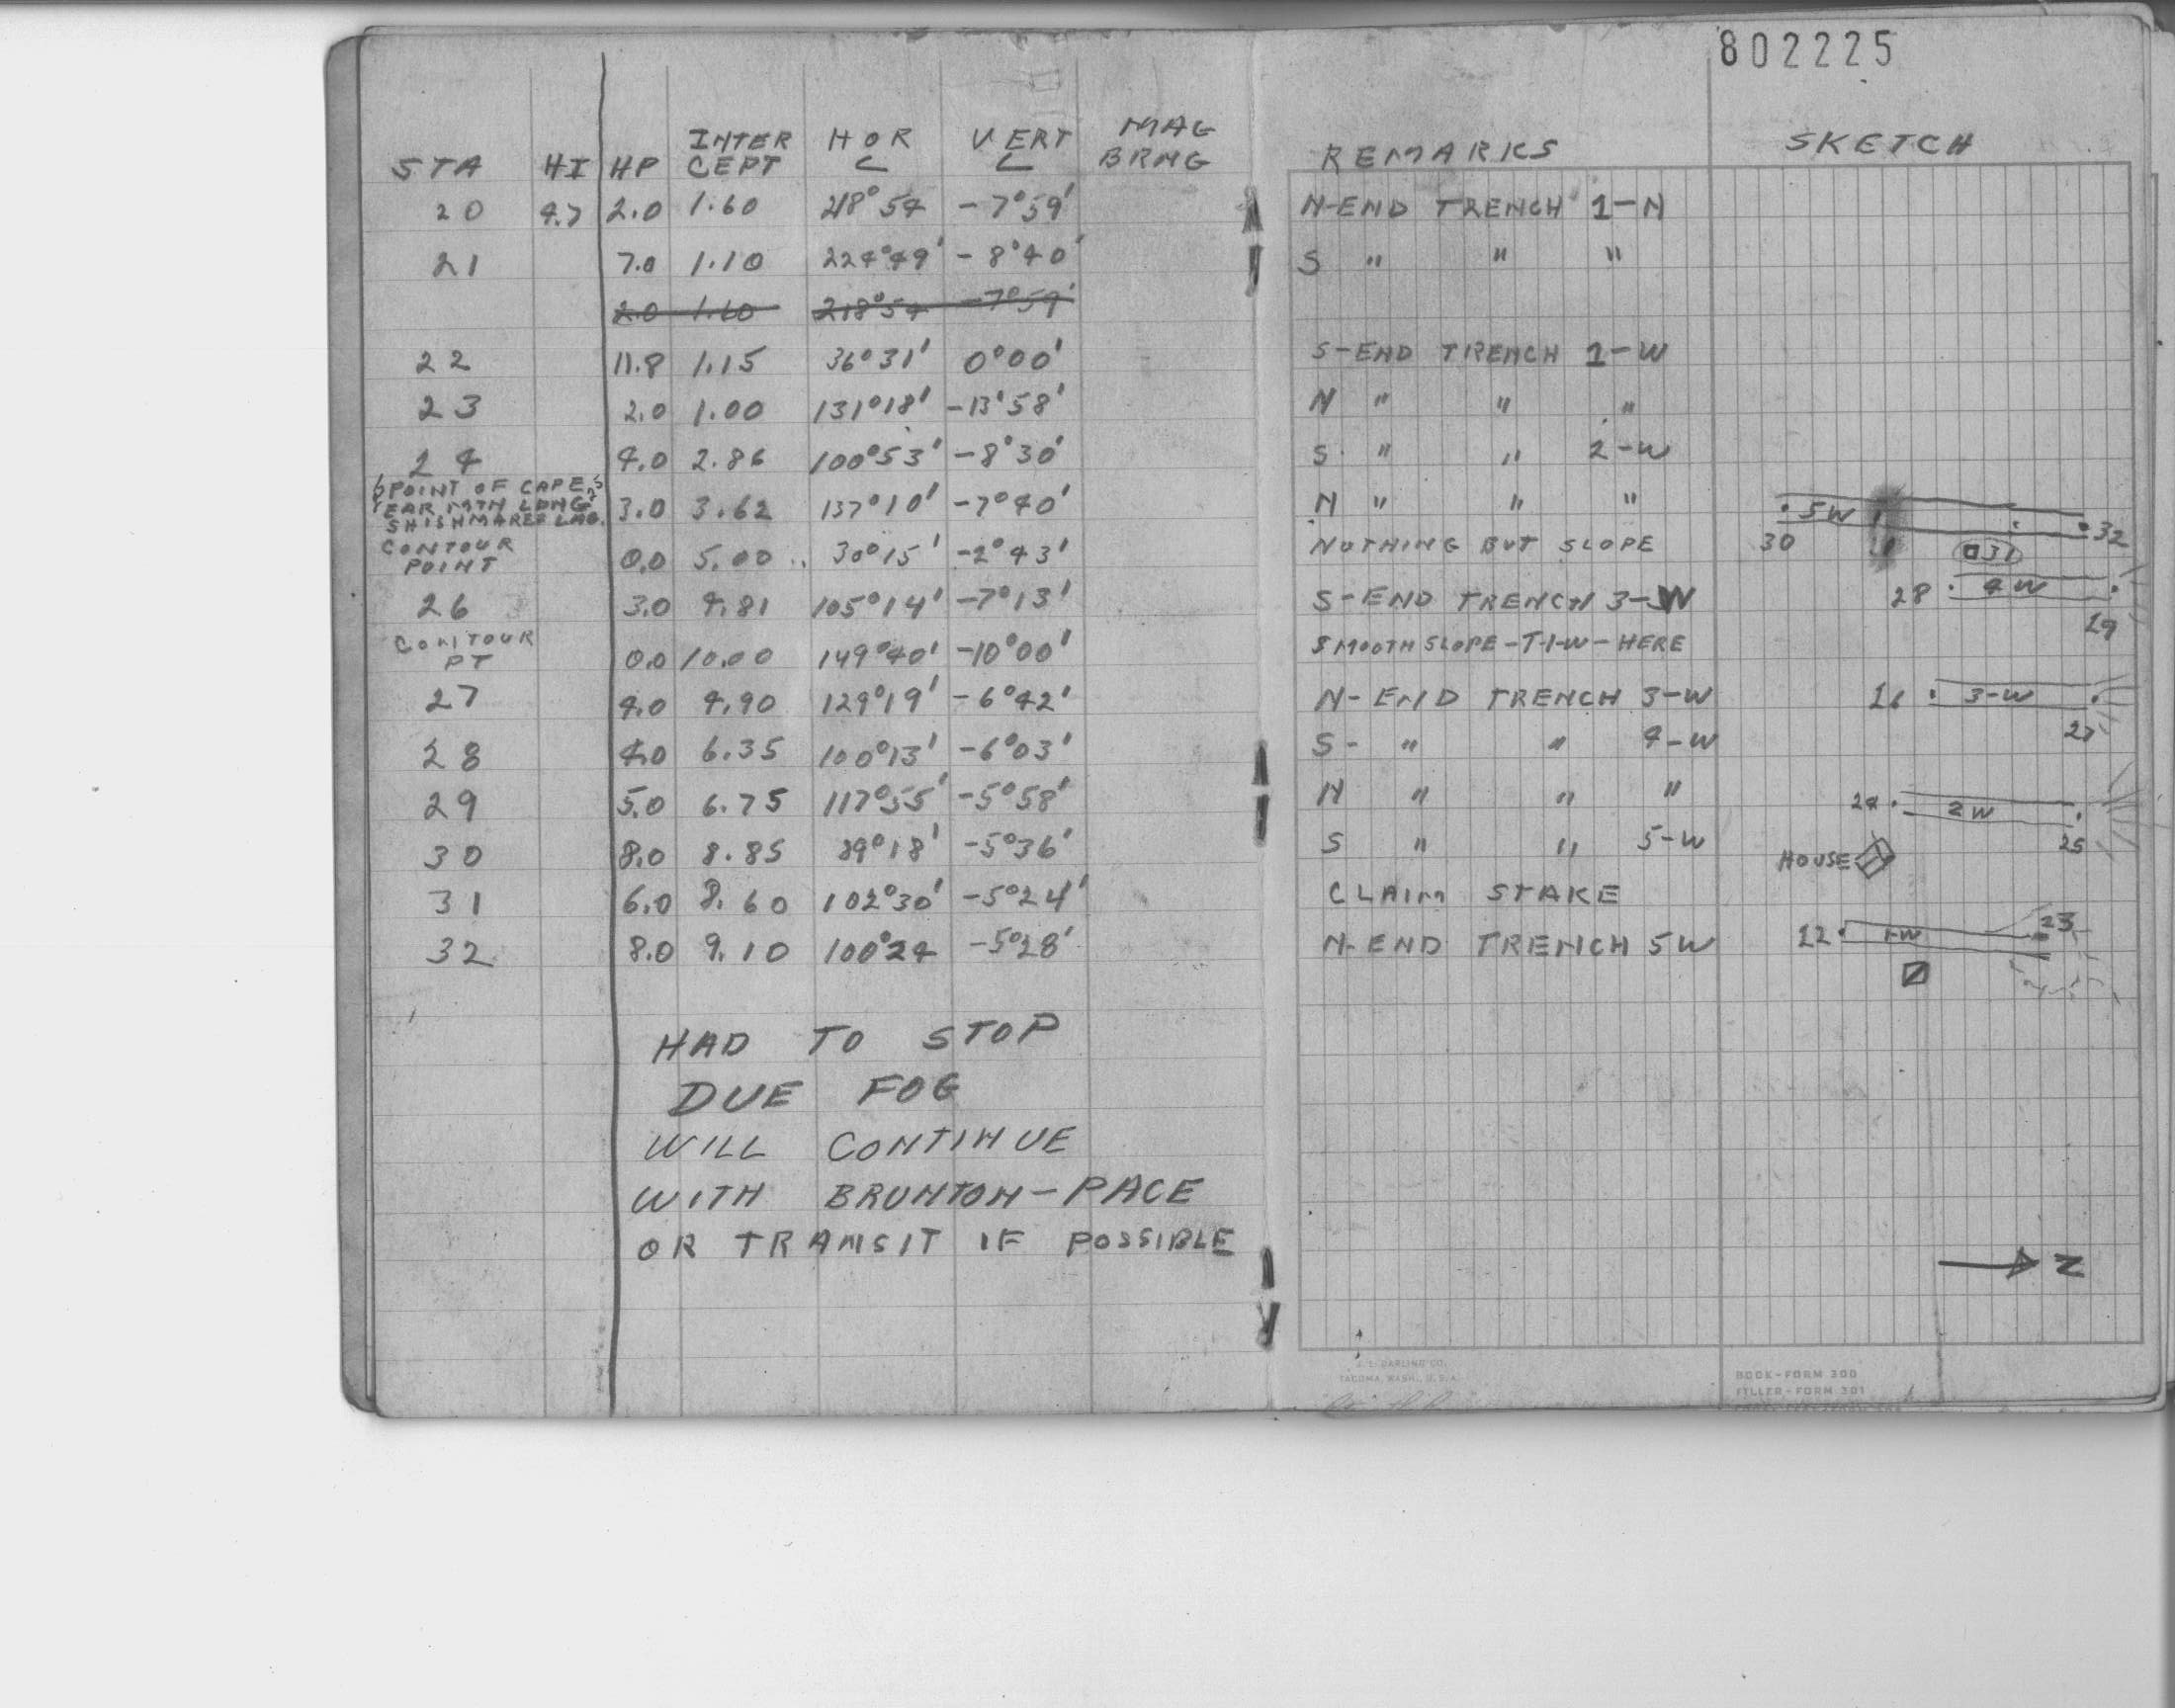 802225
STA HI HP INTER CEPT HOR ∠ VERT ∠ MAG BRNG REMARKS SKETCH
20 4.7 2.0 1.60 218°54 -7°59' N-END TRENCH 1-N
21 7.0 1.10 224°49' -8°40' S " " "
2.0 1.60 218°54 -7°59'
22 11.8 1.15 36°31' 0°00' S-END TRENCH 1-W
23 2.0 1.00 131°18' -13°58' N " " "
24 4.0 2.86 100°53' -8°30' S " " 2-W
POINT OF CAPE
SHISHMAREF LAG.
3.0 3.62 137°10' -7°40' N " " "
CONTOUR POINT 0.0 5.00 30°15' -2°43' NOTHING BUT SLOPE
26 3.0 4.81 105°14' -7°13' S-END TRENCH 3-W
CONTOUR PT 0.0 10.00 149°40' -10°00' SMOOTH SLOPE-T-1-W-HERE
27 4.0 4.90 129°19' -6°42' N-END TRENCH 3-W
28 4.0 6.35 100°13' -6°03' S- " " 4-W
29 5.0 6.75 117°55' -5°58' N " " "
30 8.0 8.85 89°18' -5°36' S " " 5-W
31 6.0 8.60 102°30' -5°24' CLAIM STAKE
32 8.0 9.10 100°24 -5°28' N-END TRENCH 5W
HAD TO STOP
DUE FOG
WILL CONTINUE
WITH BRUNTON-PACE
OR TRANSIT IF POSSIBLE
5W
30 31 32
28 4W
29
3-W
27
24 2W
25
HOUSE
1-W 23
N
J. L. DARLING CO.
TACOMA, WASH., U.S.A.
BOOK-FORM 300
FILLER-FORM 301